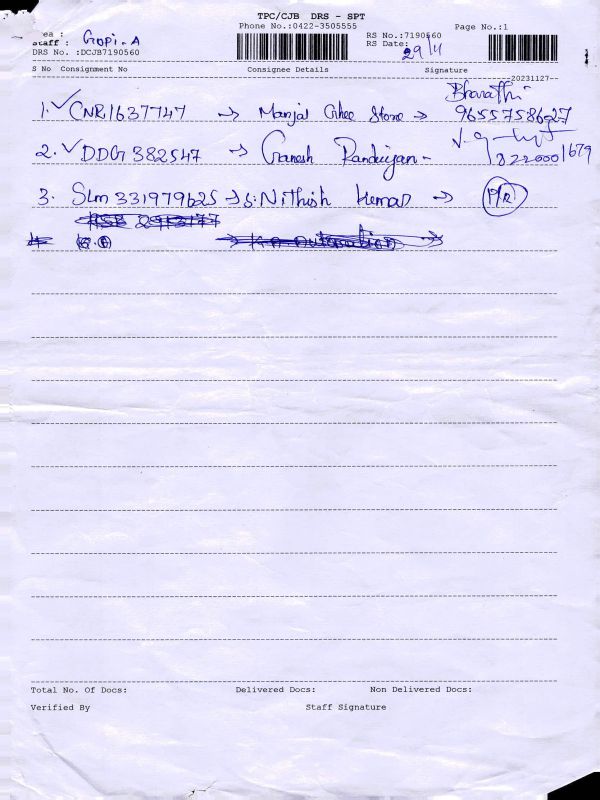 TPC/CJB DRS - SPT
Phone No.:0422-3505555
RS No.:7190560
Page No.:1
Area : Gopi-A
Staff :
RS Date: 29/11
DRS No. :DCJB7190560
S No Consignment No Consignee Details Signature
20231127
Bharathi
1. ✓ CNR1637747 → Manjal Ghee Store → 9655758627
2. ✓ DDG382547 → Ganesh Pandiyan - 8220001679
3. Slm 331979625 → S. Nithish Kumar →
Total No. Of Docs: Delivered Docs: Non Delivered Docs:
Verified By Staff Signature